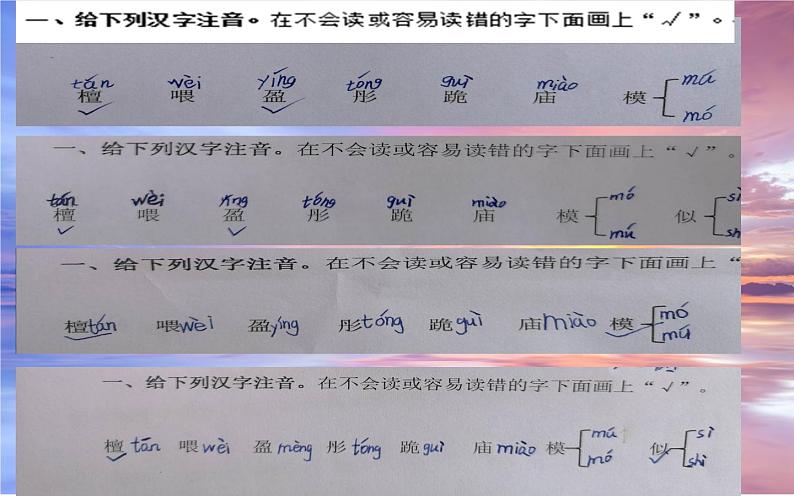 一、给下列汉字注音。在不会读或容易读错的字下面画上“√”。
tán wèi yíng tóng guì miào mú
檀 喂 盈 彤 跪 庙 模
mó
一、给下列汉字注音。在不会读或容易读错的字下面画上“√”。
tán wèi yíng tóng guì miào mó sì
檀 喂 盈 彤 跪 庙 模 似
mú sh
一、给下列汉字注音。在不会读或容易读错的字下面画上“
檀tán 喂wèi 盈yíng 彤tóng 跪guì 庙miào 模 mó
mú
一、给下列汉字注音。在不会读或容易读错的字下面画上“√”。
檀 tán 喂wèi 盈mèng 彤tóng 跪guì 庙miào 模 mú 似 sì
mó shì